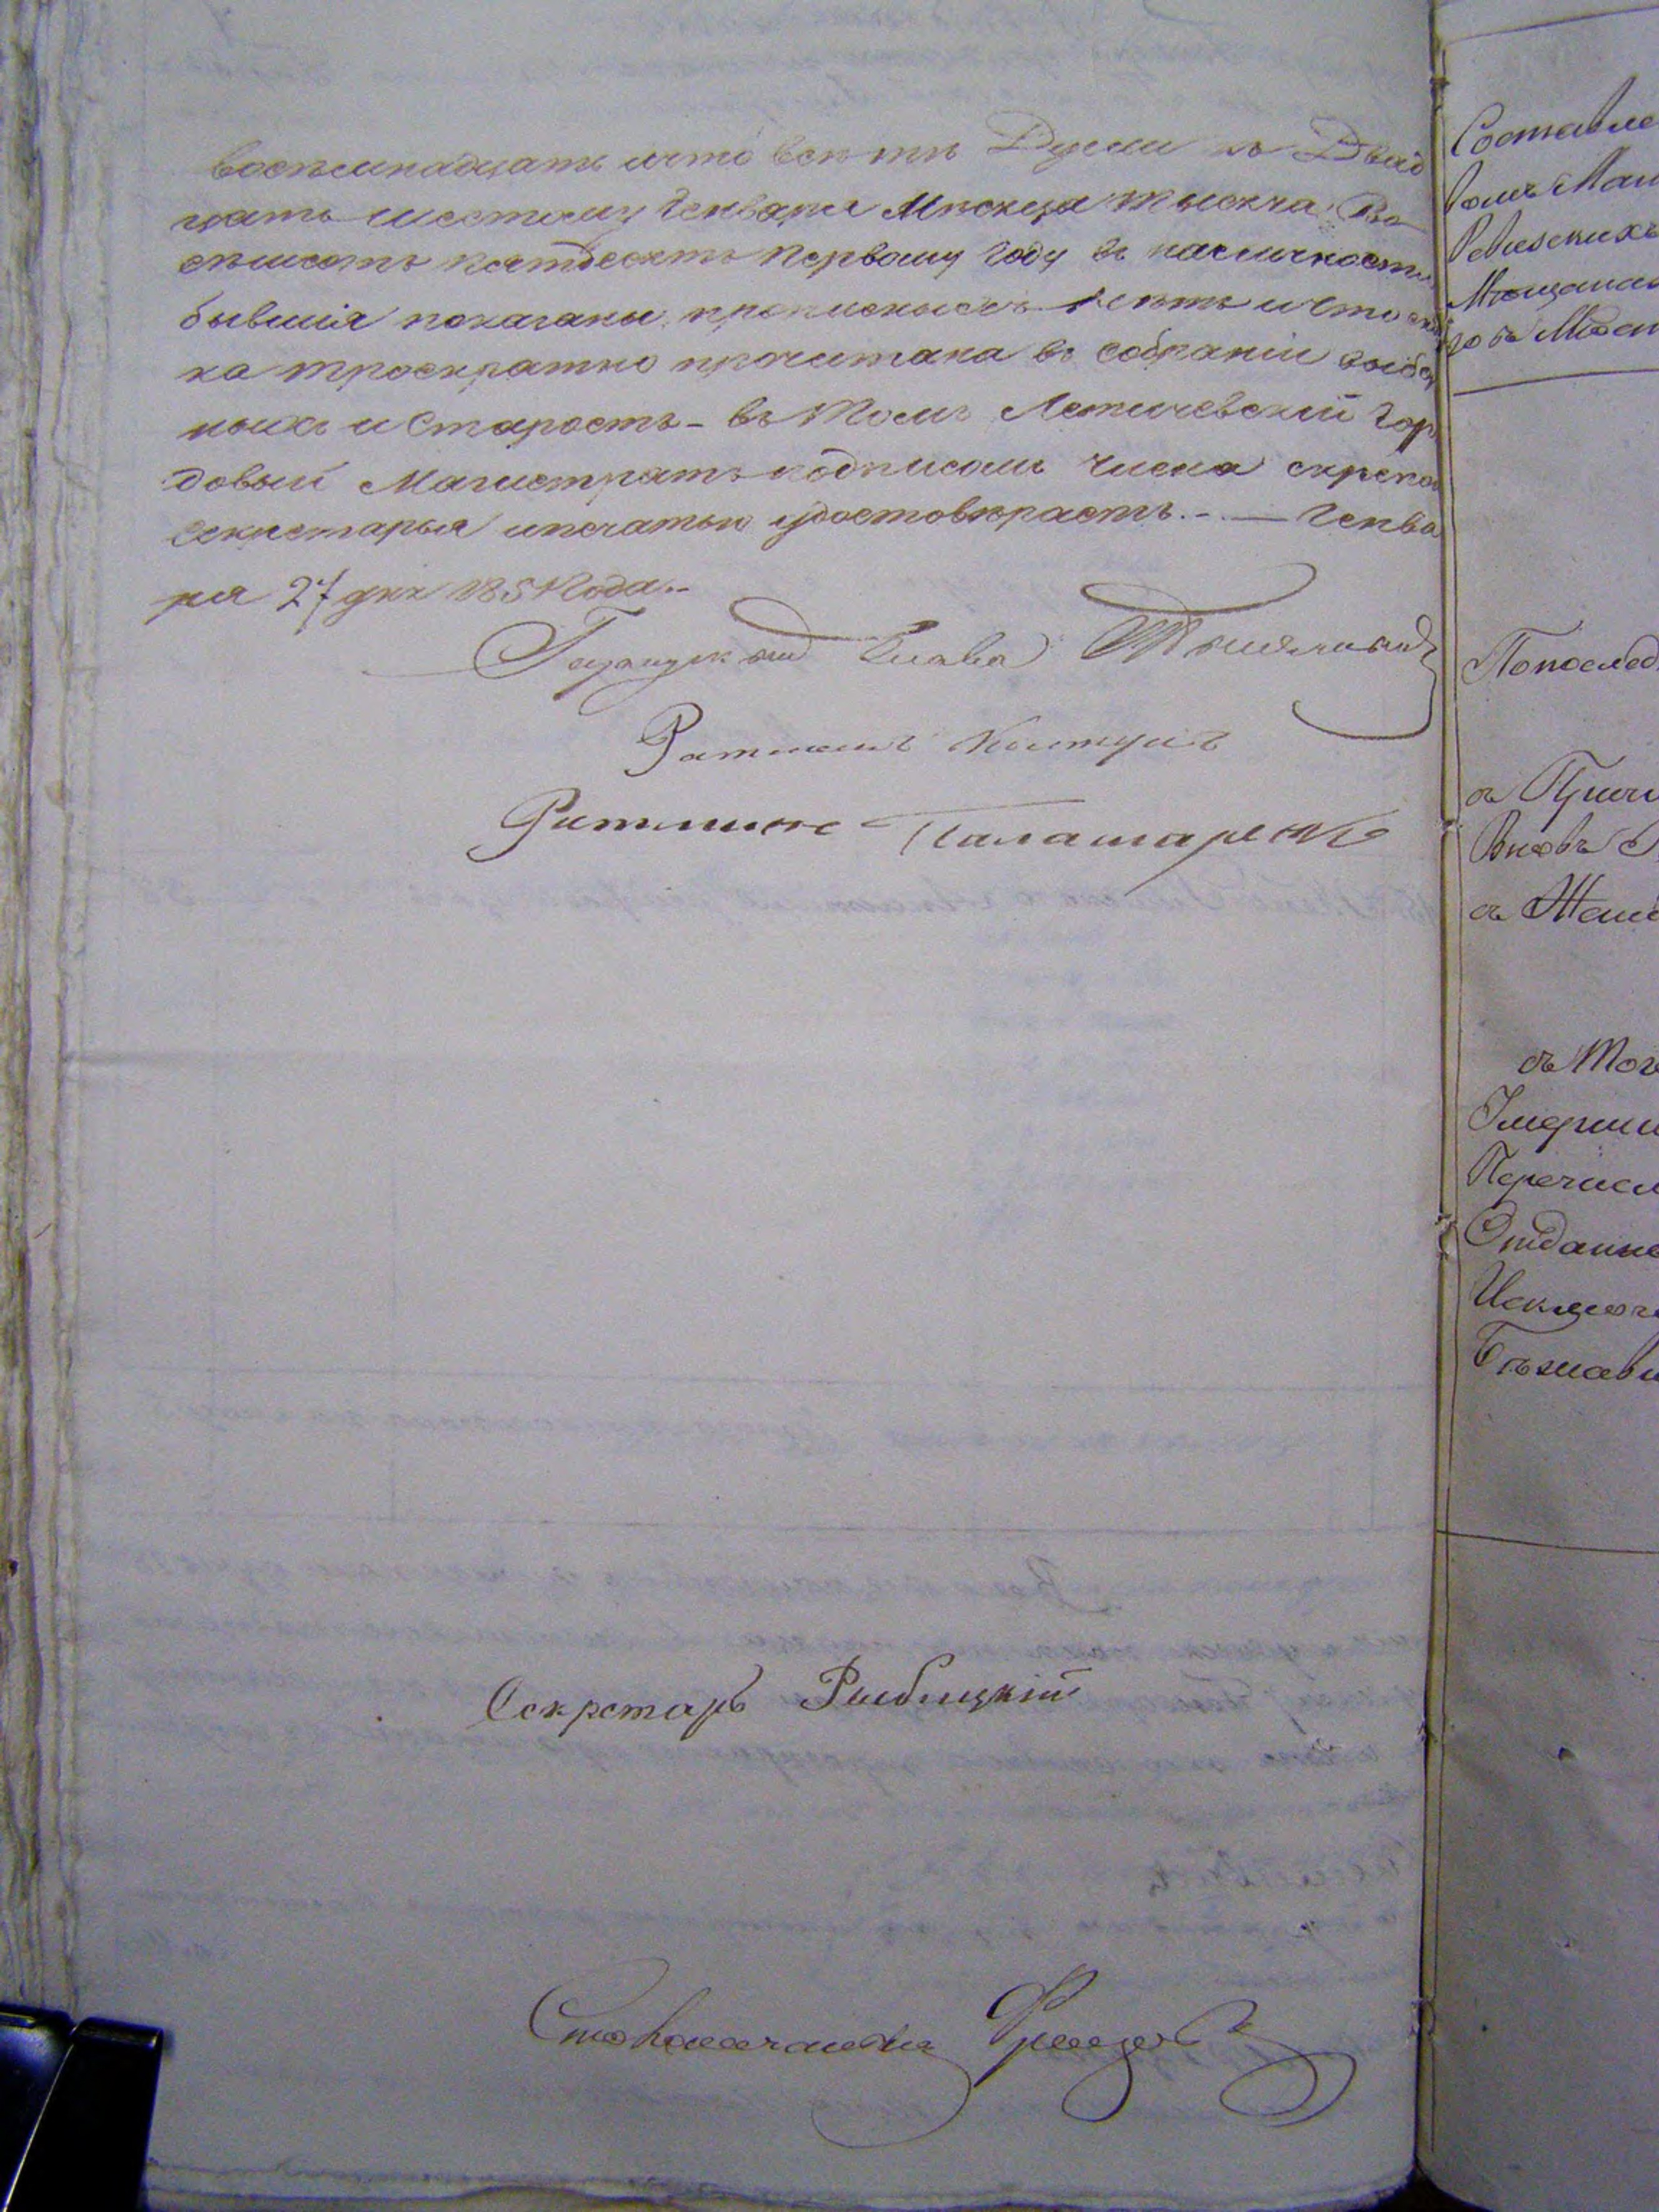 восемнадцать и что все тѣ Души къ Двад
цать шестому Генваря Мѣсяца тысяча Во
съмисотъ пятдесятъ первому году въ наличности
бывшія показаны, прописныхъ нетъ и что
ка троекратно прочитана въ собраніи выбор
ныхъ и Старостъ - въ томъ Летичевскій Горо
довый Магистратъ подписомъ члена скрепою
Секретаря и печатью удостовѣряетъ. - Генва
ря 27 дня 1851 Года.
Глава
Ратманъ
Ратманъ
Секретарь Рыблицкій
Столоначальникъ
Составле
Ревизскихъ
Мѣщанъ
Попослед
Вновь
съ
съ Тог
Умерши
Перечисл
Отданне
Исключ
Бѣжавш